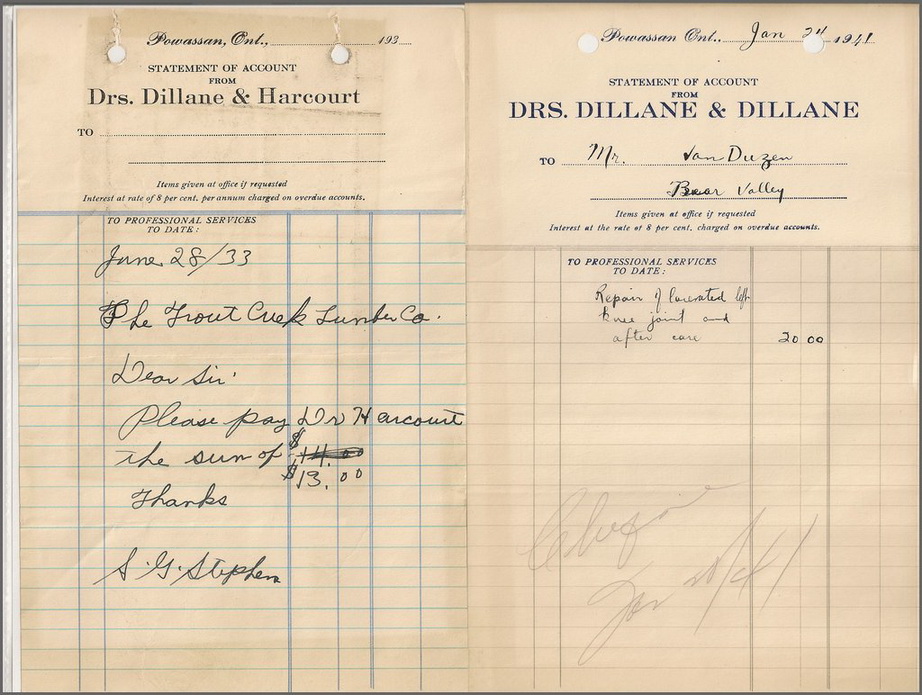 Powassan, Ont., 193
STATEMENT OF ACCOUNT
FROM
Drs. Dillane & Harcourt
TO
Items given at office if requested
Interest at rate of 8 per cent. per annum charged on overdue accounts.
TO PROFESSIONAL SERVICES
TO DATE:
June 28/33
The Trout Creek Lumber Co.
Dear Sir
Please pay Dr Harcourt
the sum of $14.00
$13.00
Thanks
S. G. Stephens
Powassan Ont., Jan 24 1941
STATEMENT OF ACCOUNT
FROM
DRS. DILLANE & DILLANE
TO Mr. Van Duzen
Bear Valley
Items given at office if requested
Interest at the rate of 8 per cent. charged on overdue accounts.
TO PROFESSIONAL SERVICES
TO DATE:
Repair of lacerated left
knee joint and
after care 20 00
Jan /41